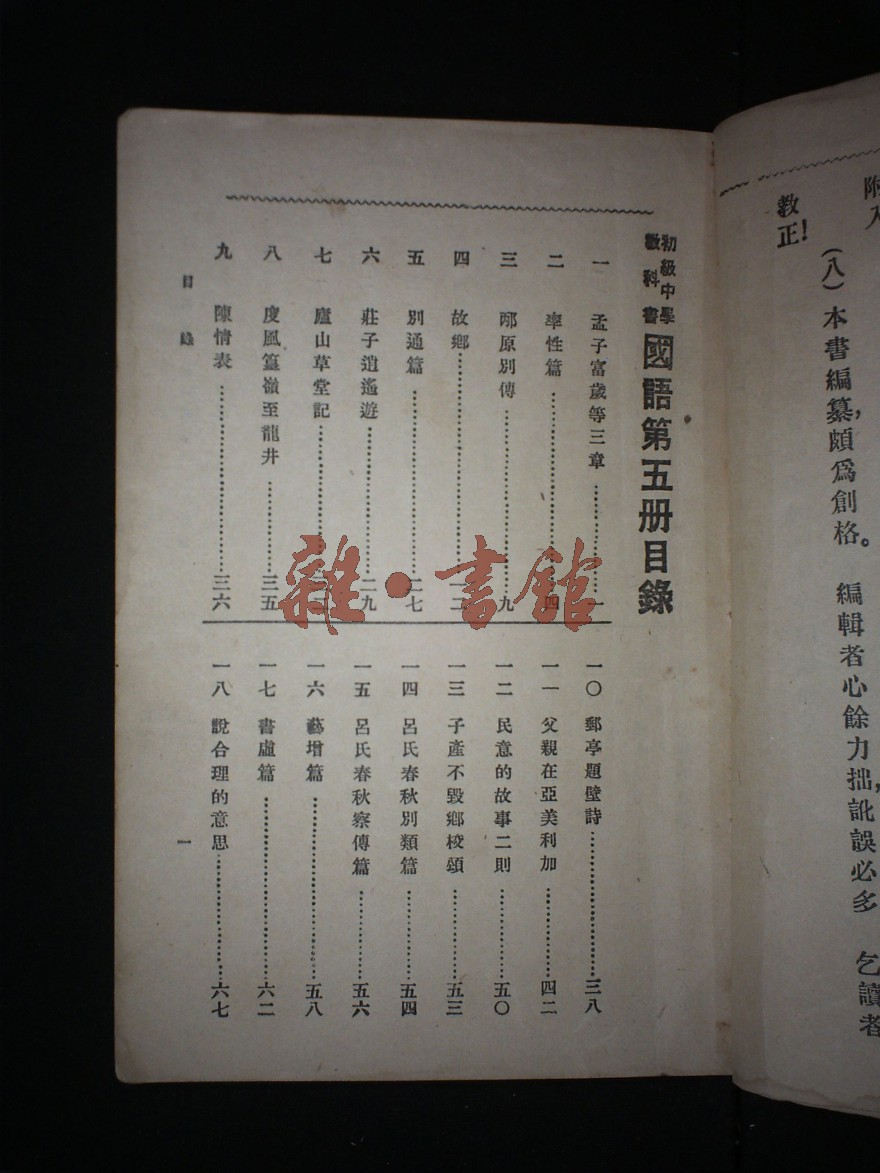 附入
(八)本書編纂,頗爲創格。 編輯者心餘力拙,訛誤必多 乞讀者
教正!
初級中學
教科書
國語第五册目錄
一 孟子富歲等三章……一
二 率性篇……四
三 邴原別傳……九
四 故鄉……一三
五 別通篇……二七
六 莊子逍遙遊……二九
七 廬山草堂記
八 度風篁嶺至龍井……三五
九 陳情表……三六
一〇 郵亭題壁詩……三八
一一 父親在亞美利加……四二
一二 民意的故事二則……五〇
一三 子產不毀鄉校頌……五三
一四 呂氏春秋別類篇……五四
一五 呂氏春秋察傳篇……五六
一六 藝增篇……五八
一七 書虛篇……六二
一八 說合理的意思……六七
目錄 一
雜·書館